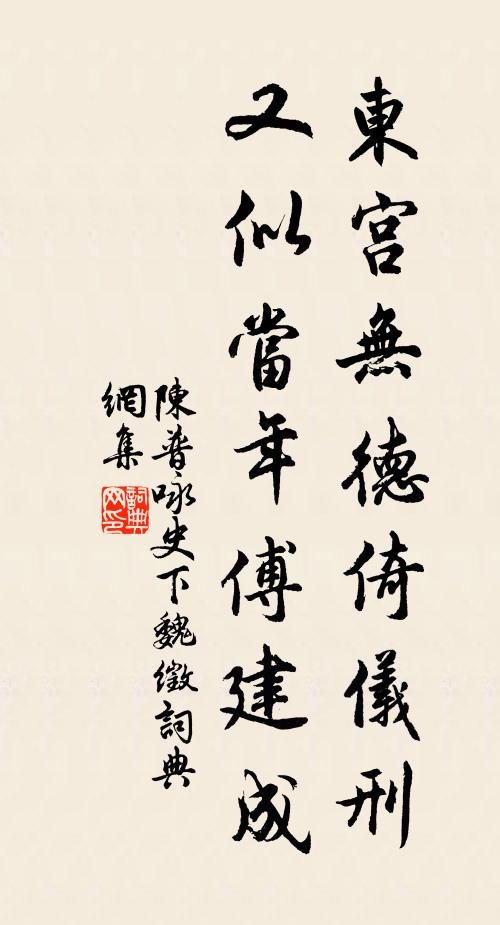 東宮無德倚儀刑
又似當年傅建成
陳普咏史下魏徵詞典
網集
詞典
网印